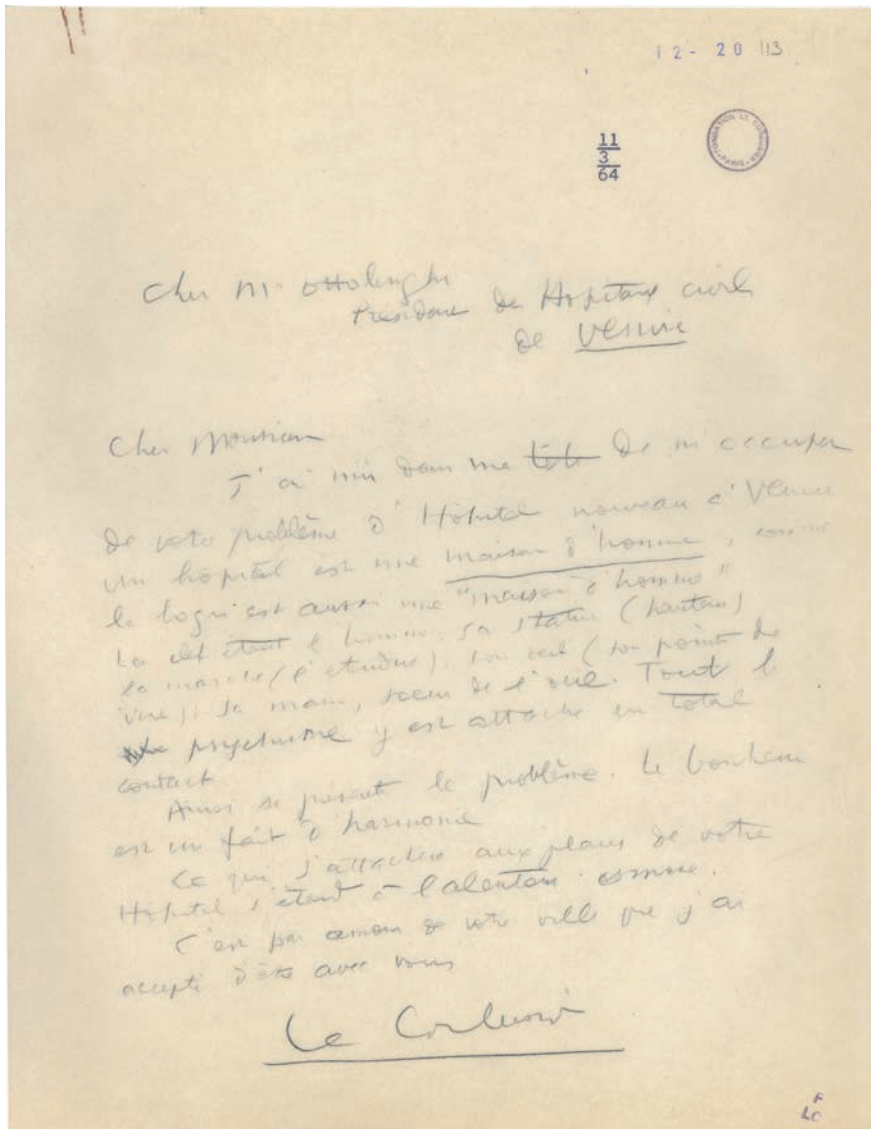 12-20 113
11
3
64
FONDATION LE CORBUSIER PARIS
Cher M. Ottolenghi
Président de Hopitaux civils
de Venise
Cher Monsieur
J'ai mis dans ma tête de m'occuper
de votre problème d'Hôpital nouveau à Venise
Un hôpital est une maison d'homme, comme
le logis est aussi une "maison d'homme"
La clef étant l'homme, sa stature (hauteur)
sa marche (l'étendue), son oeil (son point de
vue), sa main, soeur de l'oeil. Tout le
psychisme y est attaché en total
contact
Ainsi se présente le problème. Le bonheur
est un fait d'harmonie
Ce qui s'attachera aux plans de votre
Hôpital s'étend à l'alentour. osmose.
C'est par amour de votre ville que j'ai
accepté d'être avec vous
Le Corbusier